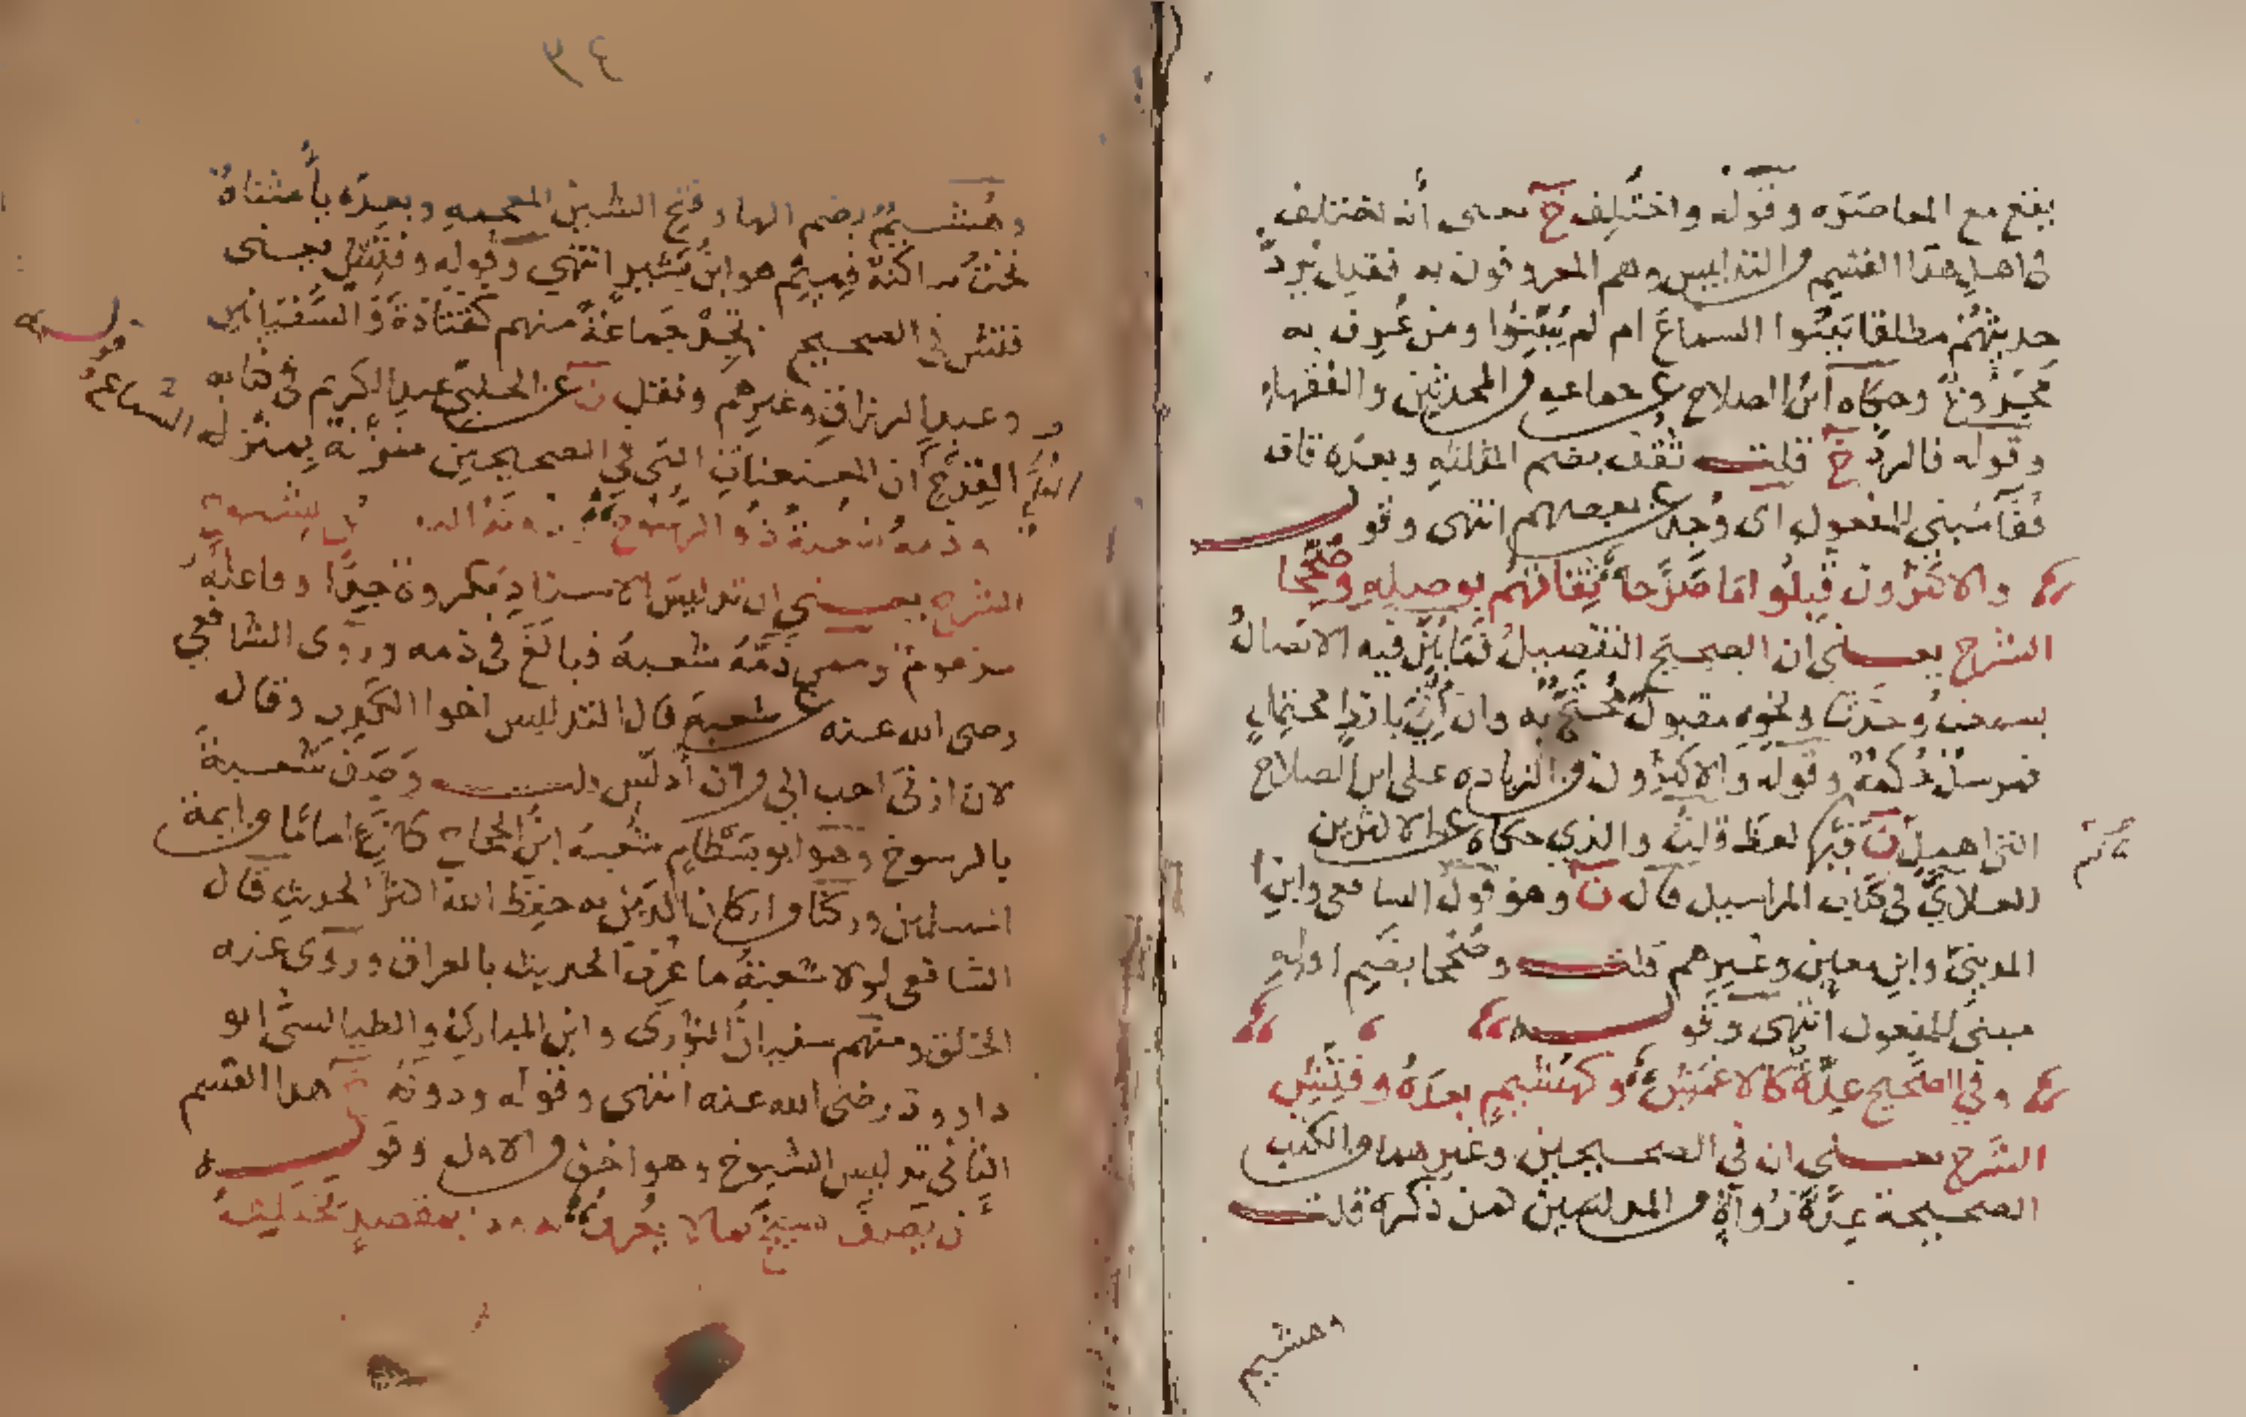 يقع مع المعاصرة وقوله واختلف خ يعنى أنه اختلف
في اهل هذا القسم من التدليس وهم المعروفون به فقيل يُرد
حديثهم مطلقا بينوا السماع ام لم يُبينوا ومن عُرف به
مجروح وحكاه ابن الصلاح عن جماعه من المحدثين والفقهاء
وقوله فالرد خ قلت ثقف بضم المثلثه وبعده قاف
فقا مبني للمفعول اى وُجد عن بعضهم انتهى وقوله
والاكثرون قبلوا ما صرحا ثقاتهم بوصله وصُححا
الشرح يعنى ان الصحيح التفصيل فما بُيّن فيه الاتصال
بسمعت وحدثنا ونحوه مقبول مُحتج به وان أتى بلفظ محتمل
فمرسل حكمه وقوله والاكثرون من الزياده على ابن الصلاح
التى اهمل ن قبلها لفظ قلت والذي حكاه عن الاكثرين
العلائي في كتاب المراسيل قال ن وهو قول الشافعى وابن
المدينى وابن معين وغيرهم قلت وصُححا بضم اوله
مبنى للمفعول انتهى وقوله
وفي الصحيح عدة كالاعمش وكهشيم بعده وفتش
الشرح يعنى ان في الصحيحين وغيرهما من الكتب
الصحيحة عدة رُواة من المدلسين فمن ذكره قلت
وهشيم
٤٦
وهُشيم بضم الها وفتح الشين المعجمه وبعده يا مثناة
تحت ساكنة فميم هو ابن بشير انتهي وقوله وفتش يعنى
فتش في الصحيح تجد جماعة منهم كقتادة والسفيانين
وعبد الرزاق وغيرهم ونقل ن عن الحلبي عبد الكريم في كتابه
القدح ان المعنعنات التى في الصحيحين منزلة بمنزله السماع
وقوله
وذمه شعبة ذو الرسوخ ودونه التدليس للشيوخ
الشرح يعنى ان تدليس الاسناد مكروه جدا وفاعله
مذموم وممن ذمه شعبة فبالغ في ذمه وروى الشافعي
رضى الله عنه عن شعبة قال التدليس اخوا الكذب وقال
لان ازنى احب الى من ان أدلس قلت وصف شعبة
بالرسوخ وهو ابو بسطام شعبة ابن الحجاج كان اماما من ايمة
المسلمين وركنا من اركان الدين به حفظ الله اكثر الحديث قال
الشافعى لولا شعبة ما عرف الحديث بالعراق وروى عنه
الخلق ومنهم سفيان الثورى وابن المبارك والطيالسى ابو
داوود رضى الله عنه انتهى وقوله ودونه خ هذا القسم
الثاني تدليس الشيوخ وهو اخف من الاول وقوله
أن يصف شيخ بما لا يعرف به وذا بمقصد يختلف